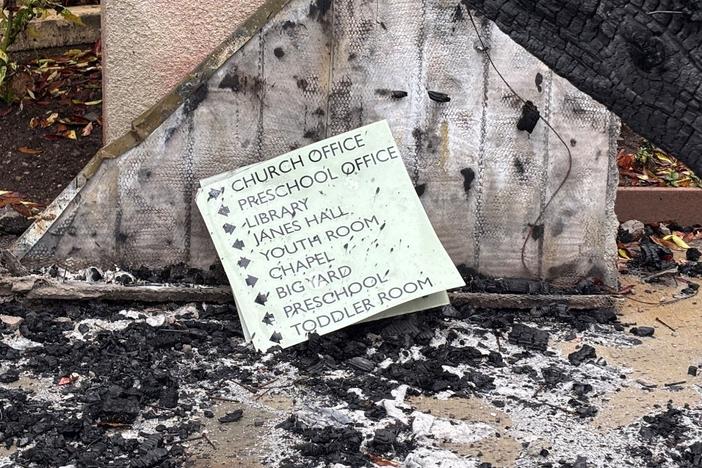 CHURCH OFFICE
PRESCHOOL OFFICE
LIBRARY
JANES HALL
YOUTH ROOM
CHAPEL
BIG YARD
PRESCHOOL
TODDLER ROOM